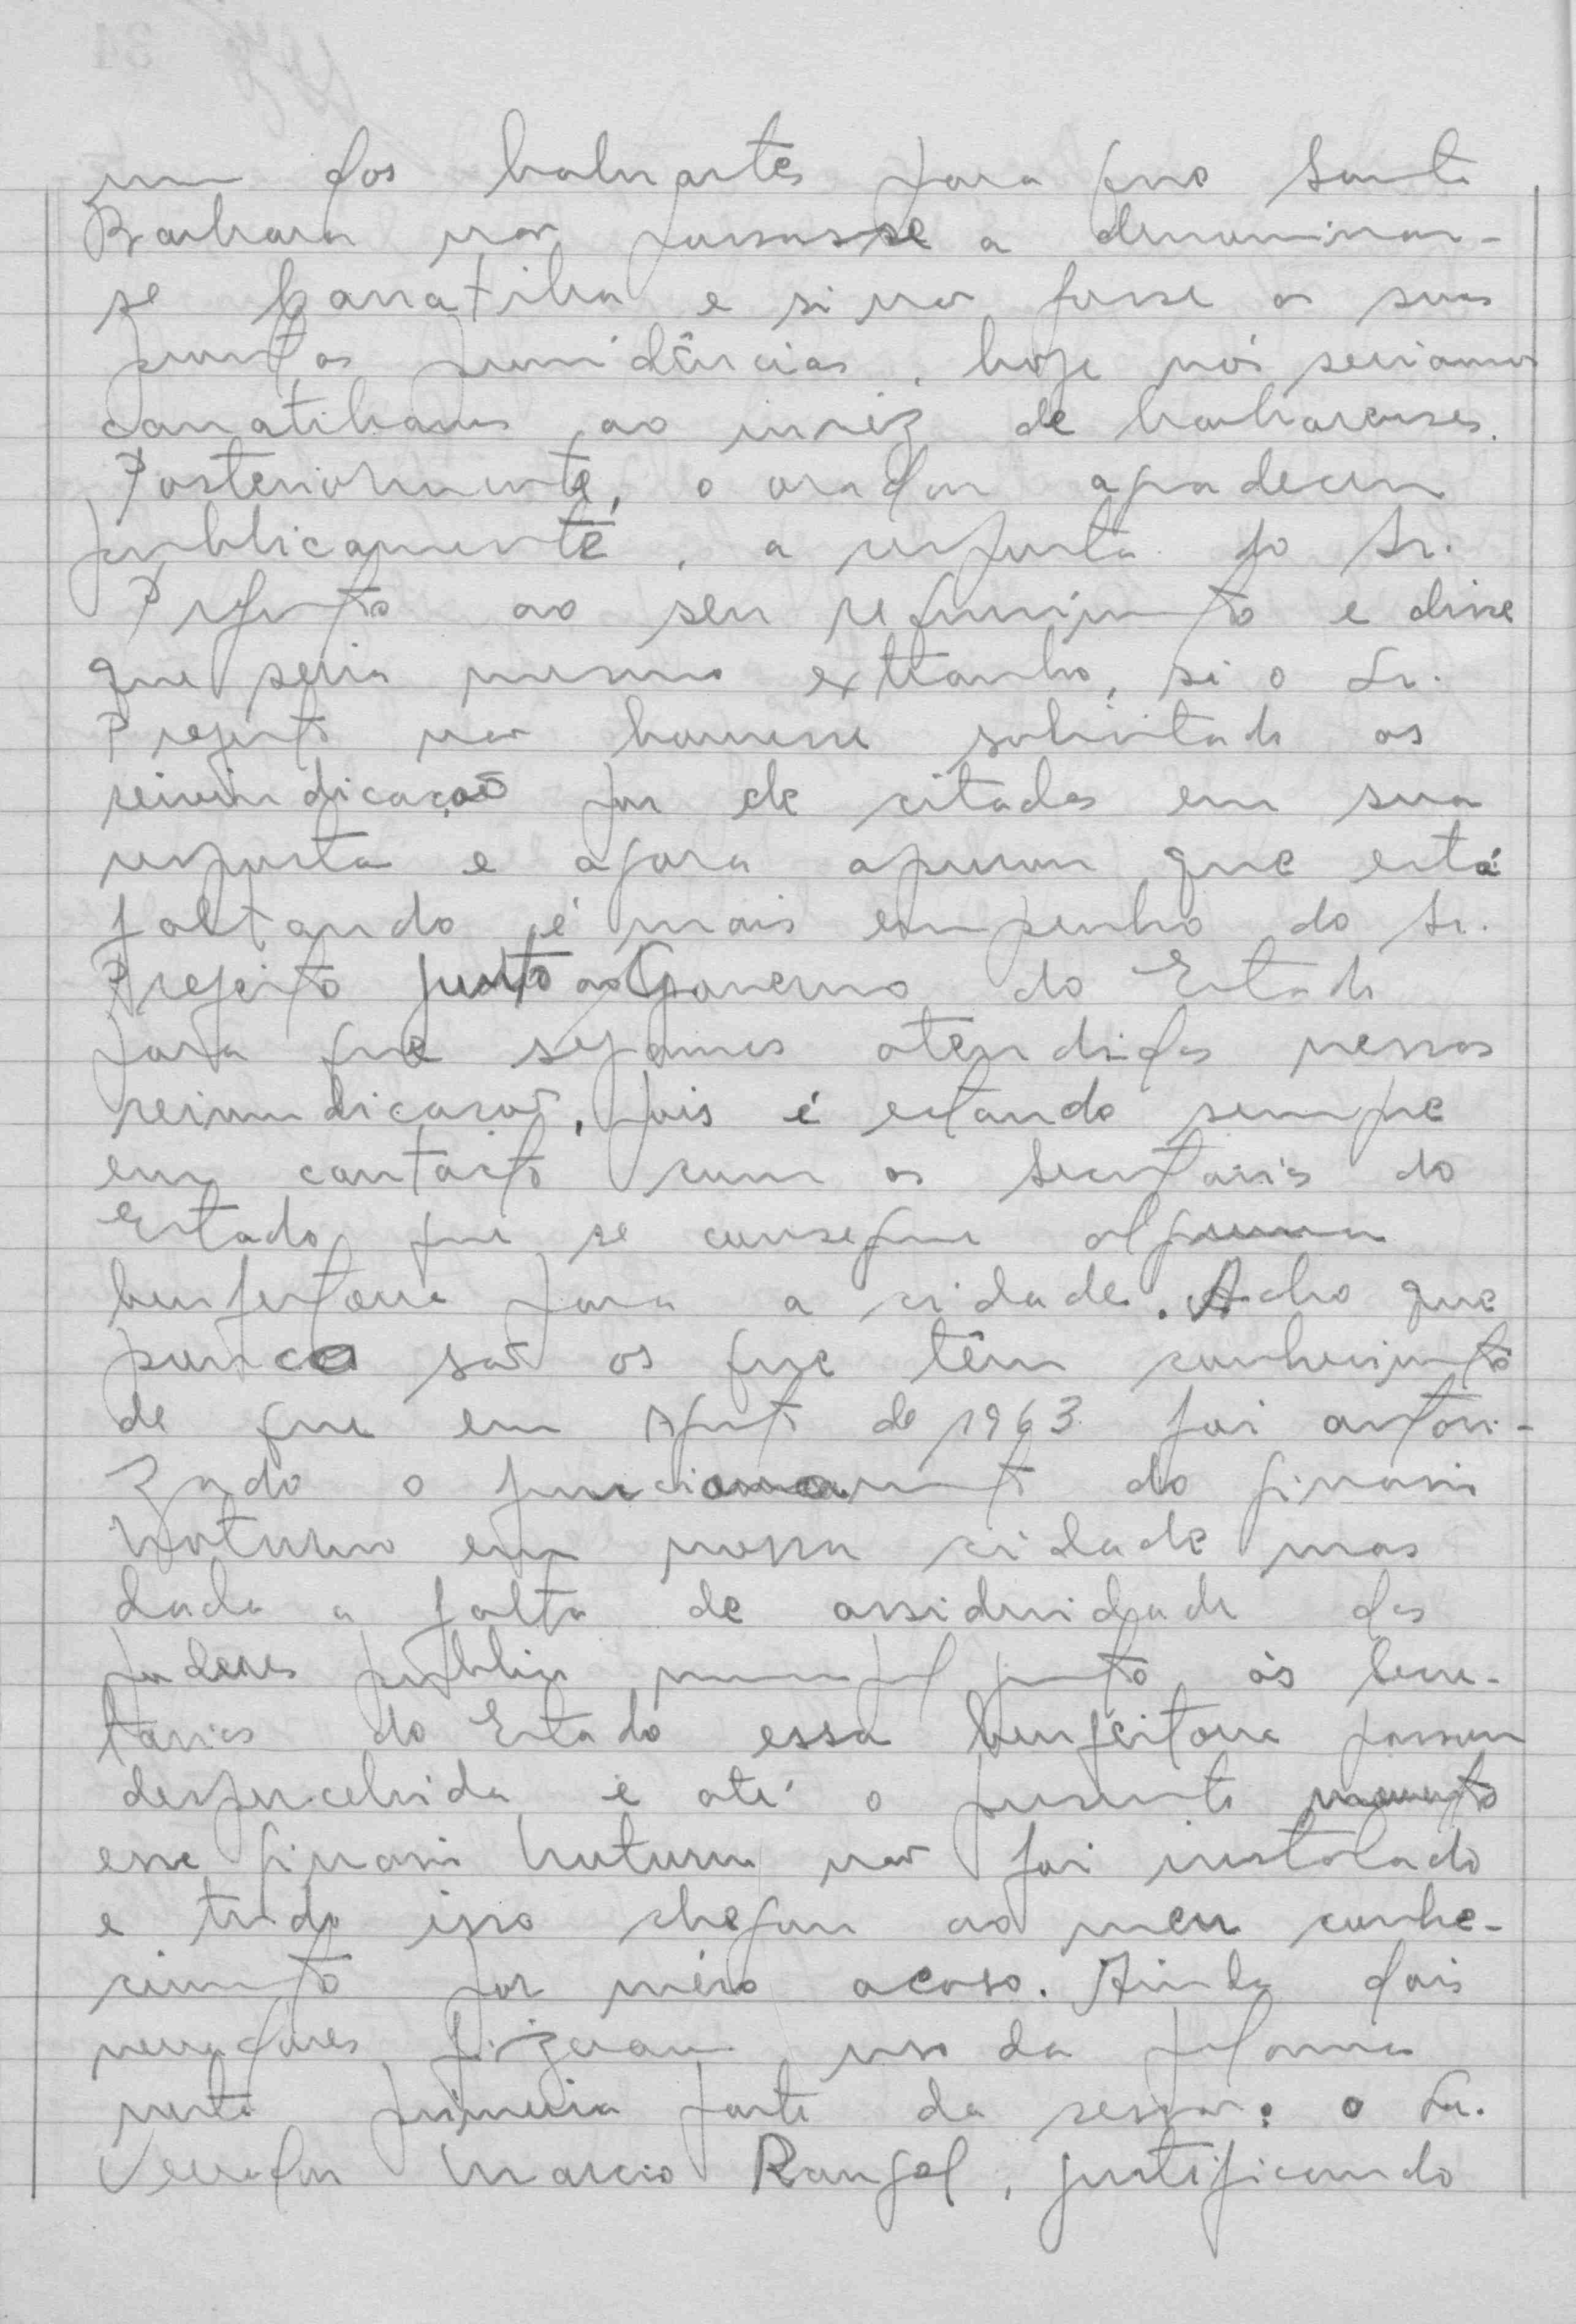 um dos baluartes para que Santa
Barbara não passasse a denominar-
se Canatiba e si não fosse as suas
prontas providências, hoje nós seriamos
canatibanos ao invéz de barbarenses.
Posteriormente, o orador agradeceu
publicamente, a resposta do Sr.
Prefeito ao seu requerimento e disse
que seria mesmo extranho, si o Sr.
Prefeito não houvesse solicitado as
reivindicação por ele citadas em sua
resposta e agora apenas que está
faltando é mais empenho do Sr.
Prefeito junto ao Governo do Estado
para que sejamos atendidos nessas
reivindicação, pois é estando sempre
em contacto com as Secretarias do
Estado que se consegue alguma
benfeitoria para a cidade. Acho que
pouco são os que têm conhecimento
de que em Agosto de 1963 foi autori-
zado o funcionamento do ginasio
noturno em nossa cidade mas
dada a falta de assiduidade dos
poderes publico municipal junto às Secre-
tarias do Estado essa benfeitoria passou
despercebida e até o presente momento
esse ginasio noturno não foi instalado
e tudo isso chegou ao meu conhe-
cimento por méro acaso. Ainda dois
vereadores fizeram uso da palavra
nesta primeira parte da sessão: o Sr.
Vereador Marcio Rangel, justificando